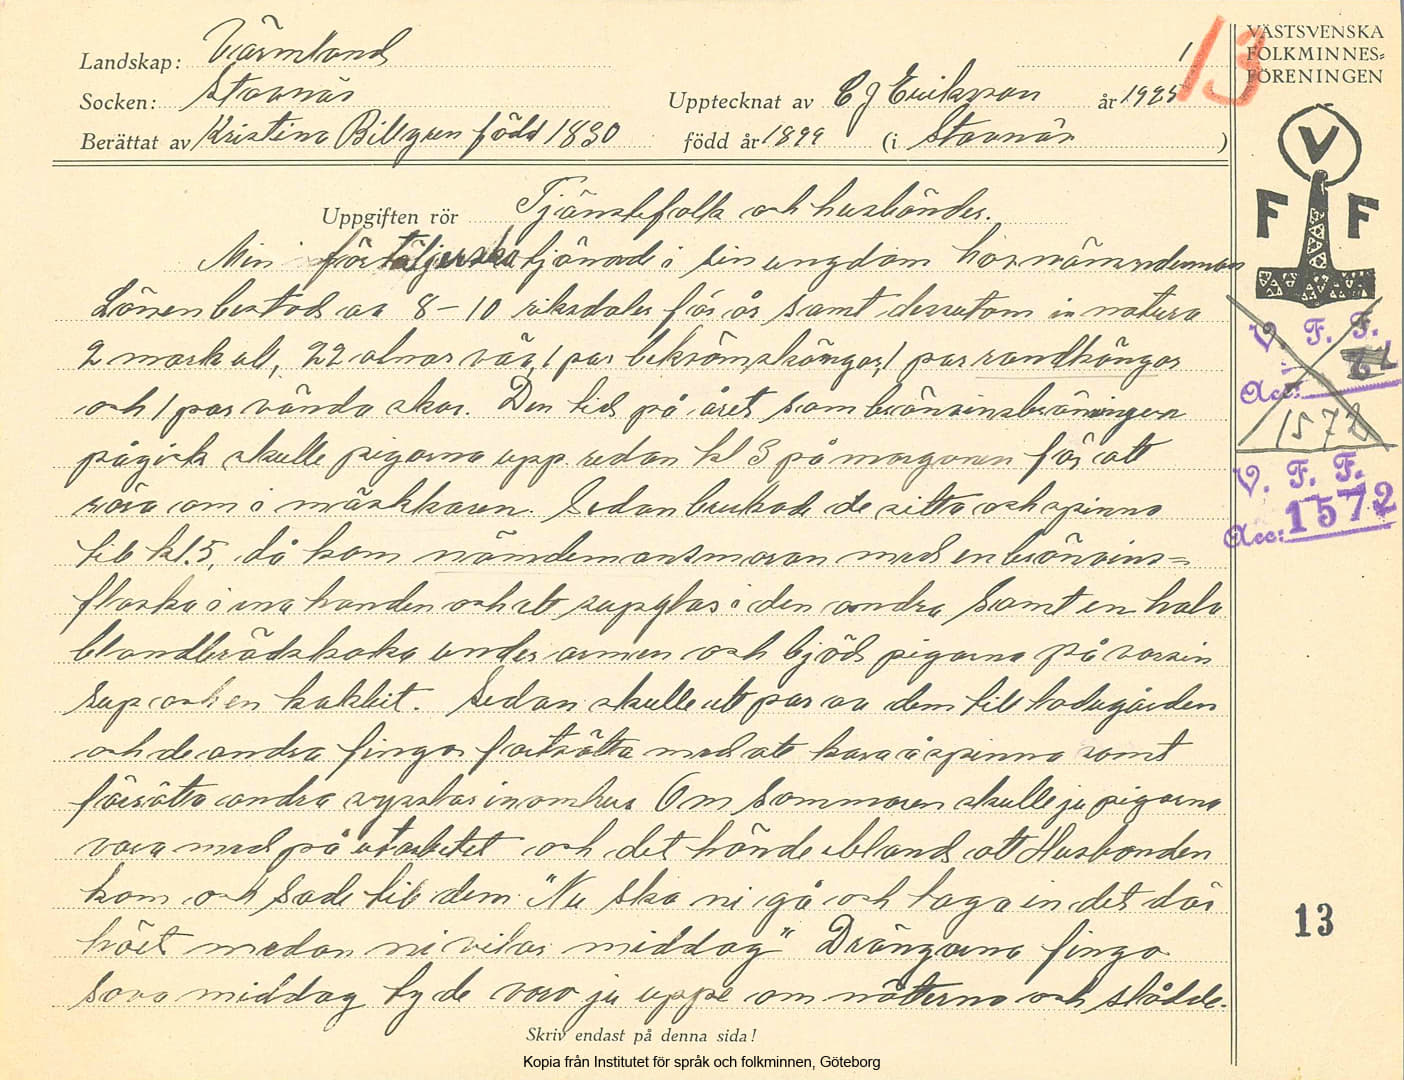 Landskap: Värmland
Socken: Stavnäs
Berättat av Kristina Billgren född 1830
1
Upptecknat av C J Eriksson år 1925
född år 1899 (i Stavnäs )
13
VÄSTSVENSKA
FOLKMINNES=
FÖRENINGEN
V
F F
Uppgiften rör Tjänstefolk och husbönder.
Min förtäljerska tjänade i sin ungdom hos nämndeman
Lönen bestod av 8-10 riksdaler för år samt dessutom in natura
2 mark ull, 22 alnar väv, 1 par beksömskängor, 1 par randkängor
och 1 par vända skor. Den tid på året som brännvinsbränningen
pågick skulle pigorna upp redan kl 3 på morgonen för att
röra om i mäskkaren. Sedan brukade de sitta och spinna
till kl. 5, då kom nämdemansmoran med en brännvins=
flaska i ena handen och ett supglas i den andra samt en halv
blandbrödskaka under armen och bjöd pigorna på varsin
sup och en kakbit. Sedan skulle ett par av dem till ladugården
och de andra fingo fortsätta med att karda å spinna samt
förrätta andra sysslor inomhus Om sommaren skulle ju pigorna
vara med på utarbetet och det hände ibland att Husbonden
kom och sade till dem "Nu ska ni gå och taga in det där
höet medan ni vilar middag" Drängarna fingo
sova middag ty de voro ju uppe om nätterna och slådde.
Skriv endast på denna sida!
V. F. F.
Acc:
1572
V. F. F.
Acc: 1572
13
Kopia från Institutet för språk och folkminnen, Göteborg